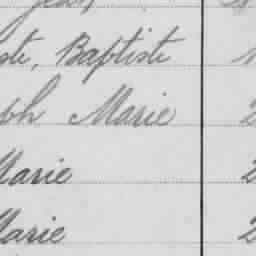 ste, Baptiste
ph Marie 2
Marie 2
Marie 2